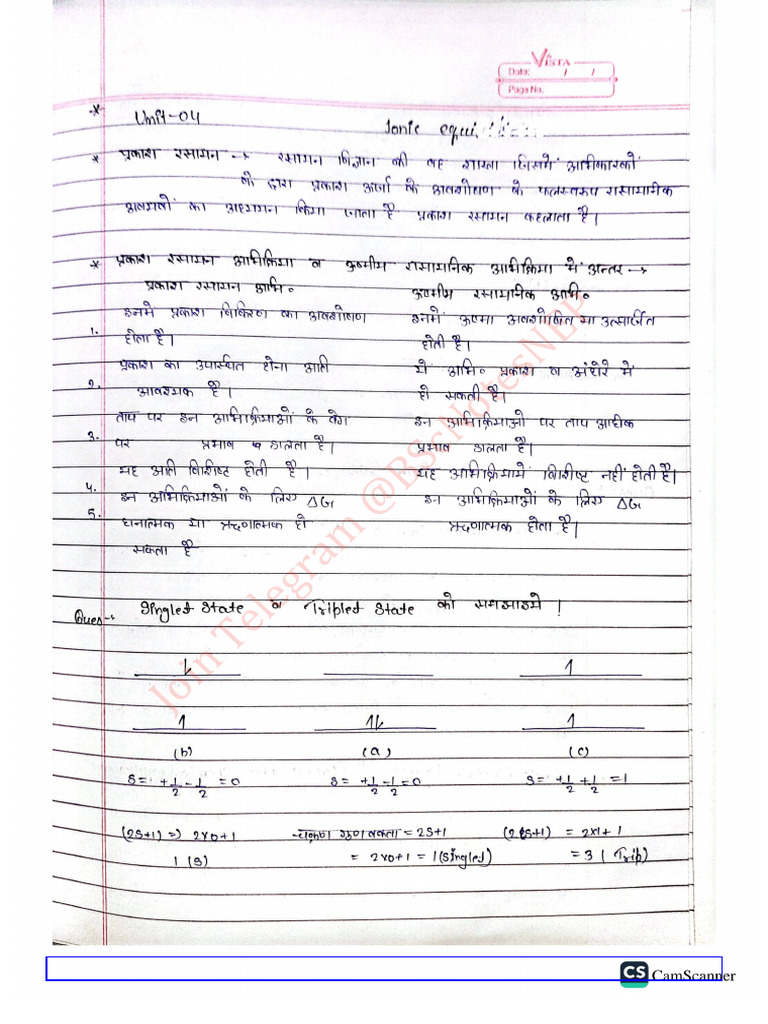 VISTA
Date: / /
Page No.
* Unit-04 Ionic equi
* प्रकाश रसायन → रसायन विज्ञान की वह शाखा जिसमें अभिकारकों
के द्वारा प्रकाश ऊर्जा के अवशोषण के फलस्वरूप रासायनिक
अवयवों का अध्ययन किया जाता है प्रकाश रसायन कहलाता है।
* प्रकाश रसायन अभिक्रिया व ऊष्मीय रासायनिक अभिक्रिया में अन्तर →
प्रकाश रसायन अभि० ऊष्मीय रसायनिक अभि०
1. इनमे प्रकाश विकिरण का अवशोषण इनमें ऊष्मा अवशोषित या उत्सर्जित
होता है। होती है।
2. प्रकाश का उपस्थित होना अति ये अभि० प्रकाश व अंधेरे में
आवश्यक है। हो सकती है।
3. ताप पर इन अभिक्रियाओं के वेग इन अभिक्रियाओ पर ताप अधिक
पर प्रभाव डालता है। प्रभाव डालता है।
4. यह अति विशिष्ट होती है। यह अभिक्रियायें विशिष्ट नहीं होती है।
5. इन अभिक्रियाओं के लिए ΔG इन अभिक्रियाओं के लिए ΔG
धनात्मक या ऋणात्मक हो ऋणात्मक होता है।
सकता है
Ques → Singled State व Tripled State को समझाइये।
1 1
1 1L 1
(b) (a) (c)
S = +1/2 - 1/2 = 0 S = +1/2 - 1/2 = 0 S = +1/2 + 1/2 = 1
(2S+1) => 2x0+1 चक्रण गुणवकता = 2S+1 (2S+1) = 2x1+1
1 (S) = 2x0+1 = 1(Singled) = 3 ( Trip)
Join Telegram @BScNotesNEP
CS CamScanner